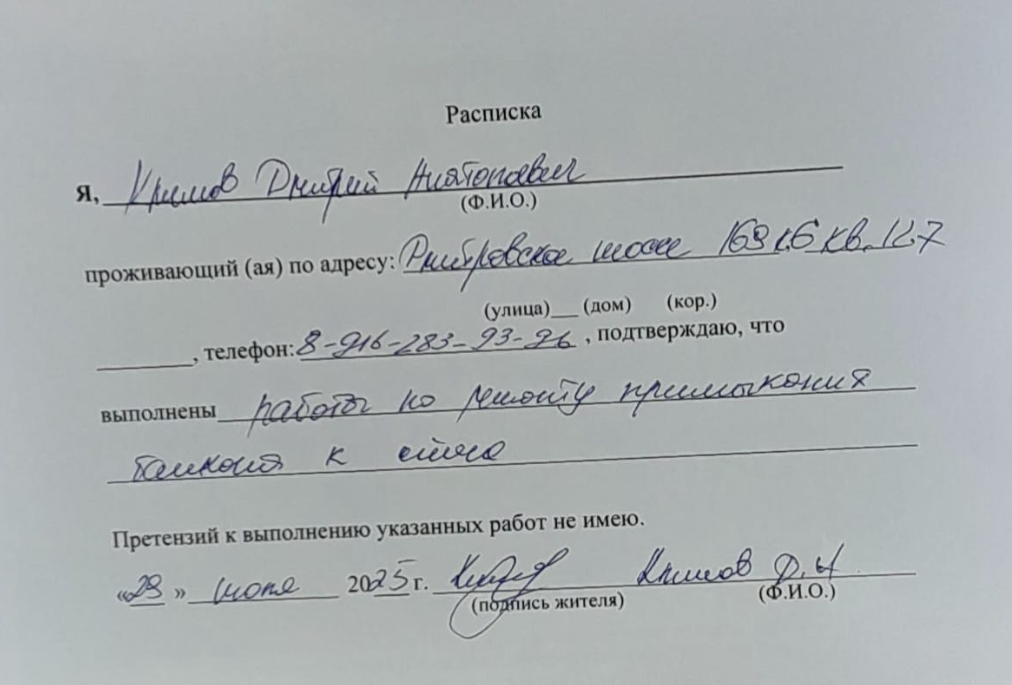 Расписка
Я, Климов Дмитрий Анатольевич
(Ф.И.О.)
проживающий (ая) по адресу: Дмитровское шоссе 169 к.6 кв.
(улица)___ (дом) (кор.)
________, телефон: 8-916-283-93-26, подтверждаю, что
выполнены работы по ремонту примыкания
балкона к стене
Претензий к выполнению указанных работ не имею.
«29» 2025 г. Климов Д.А.
(подпись жителя) (Ф.И.О.)